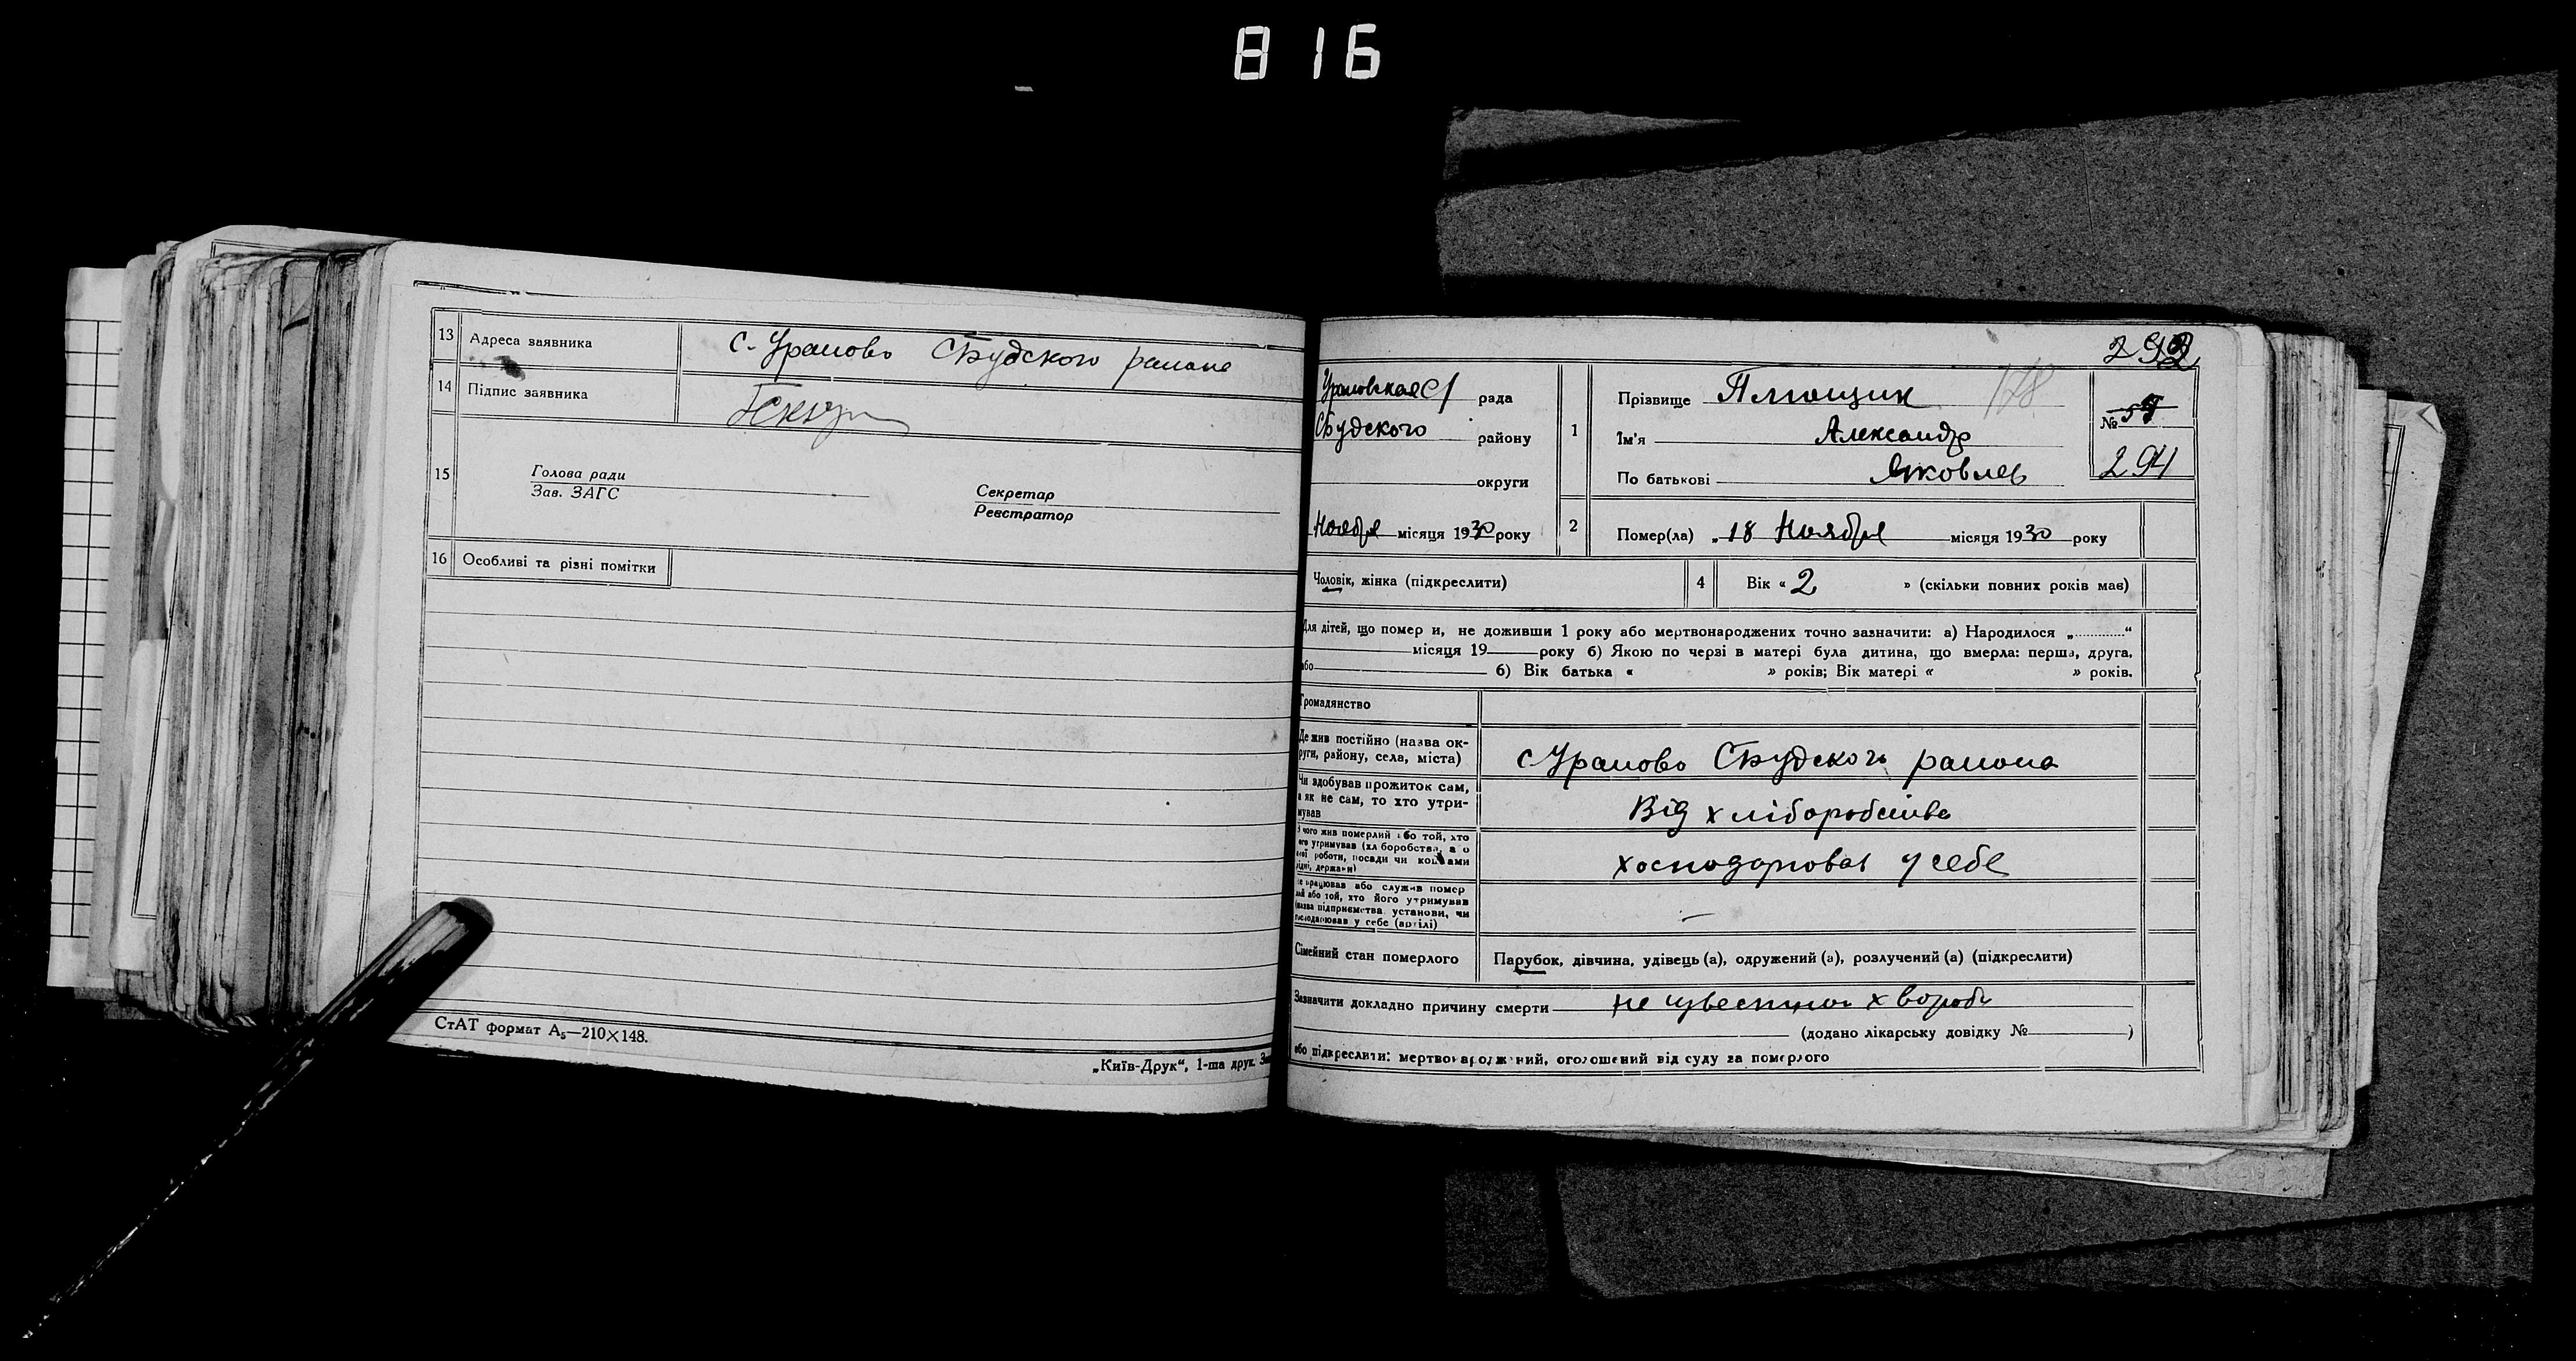 816
13 Адреса заявника с. Уралово СБудского района
14 Підпис заявника
15 Голова ради
Зав. ЗАГС
Секретар
Реєстратор
16 Особливі та різні помітки
СтАТ формат А5—210×148.
„Київ-Друк“, 1-ша друк. За
292
Ураловская с/ рада
СБудского району
округи
Ноября місяця 1930 року
1 Прізвище 178
Ім'я Александр
По батькові Яковлев
№ 57
294
2 Помер(ла) „18 Ноября місяця 1930 року
Чоловік, жінка (підкреслити)
4 Вік «2 » (скільки повних років має)
Для дітей, що помер и, не доживши 1 року або мертвонароджених точно зазначити: а) Народилося „............“
місяця 19 року б) Якою по черзі в матері була дитина, що вмерла: перша, друга,
або б) Вік батька « » років; Вік матері « » років.
Громадянство
Де жив постійно (назва ок-
руги, району, села, міста) с Уралово СБудского района
Чи здобував прожиток сам,
а як не сам, то хто утри-
мував Від хліборобства
З чого жив померлий або той, хто
його утримував (хл боробства, а о
роботи, посади чи коштами
держави) хосподарювал у себе
Де працював або служив помер
лий або той, хто його утримував
(назва підприємства, установи, чи
господарював у себе (артілі) —
Сімейний стан померлого Парубок, дівчина, удівець (а), одружений (а), розлучений (а) (підкреслити)
Зазначити докладно причину смерти не известной хвороби
(додано лікарську довідку № )
або підкреслити: мертвонароджений, оголошений від суду за померлого